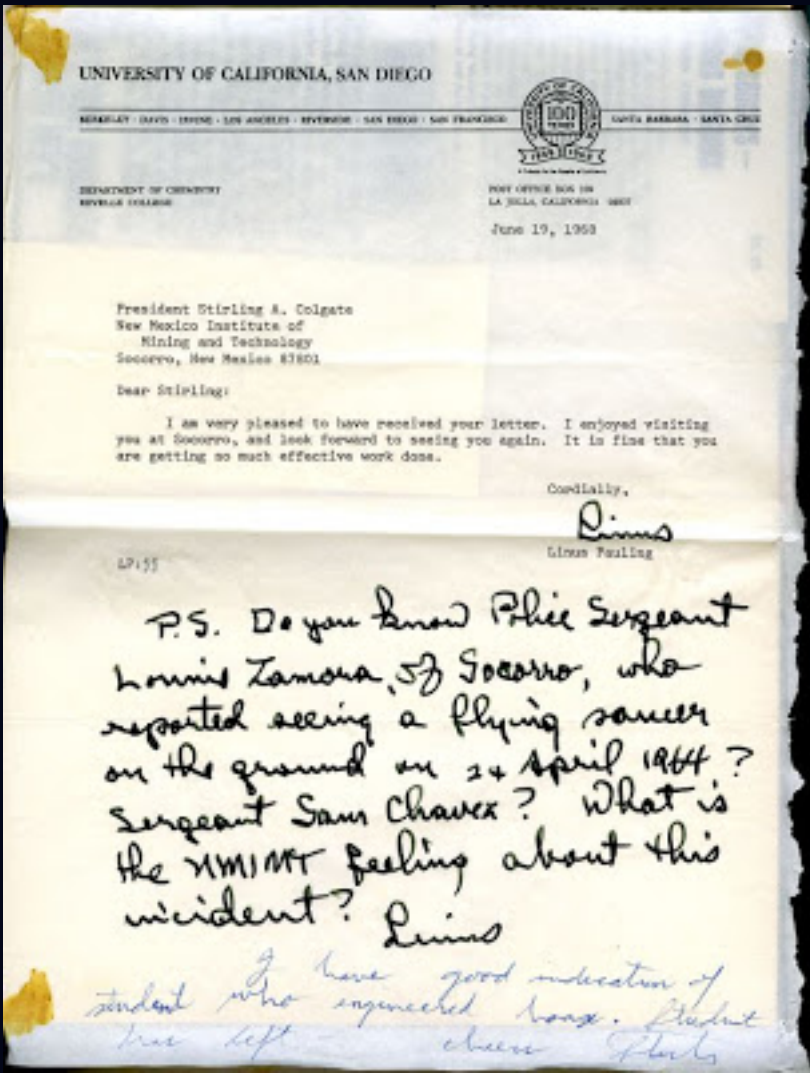 UNIVERSITY OF CALIFORNIA, SAN DIEGO
BERKELEY · DAVIS · IRVINE · LOS ANGELES · RIVERSIDE · SAN DIEGO · SAN FRANCISCO
SANTA BARBARA · SANTA CRUZ
UNIVERSITY OF CALIFORNIA
100
YEARS
1868 1968
DEPARTMENT OF CHEMISTRY
REVELLE COLLEGE
POST OFFICE BOX 109
LA JOLLA, CALIFORNIA
June 19, 1968
President Stirling A. Colgate
New Mexico Institute of
Mining and Technology
Socorro, New Mexico 87801
Dear Stirling:
I am very pleased to have received your letter. I enjoyed visiting
you at Socorro, and look forward to seeing you again. It is fine that you
are getting so much effective work done.
Cordially,
Linus
Linus Pauling
P.S. Do you know Police Sergeant
Lonnie Zamora, of Socorro, who
reported seeing a flying saucer
on the ground on 24 April 1964?
Sergeant Sam Chavez? What is
the NMIMT feeling about this
incident?
Linus
I have good indication of
student who engineered hoax. Student
has left